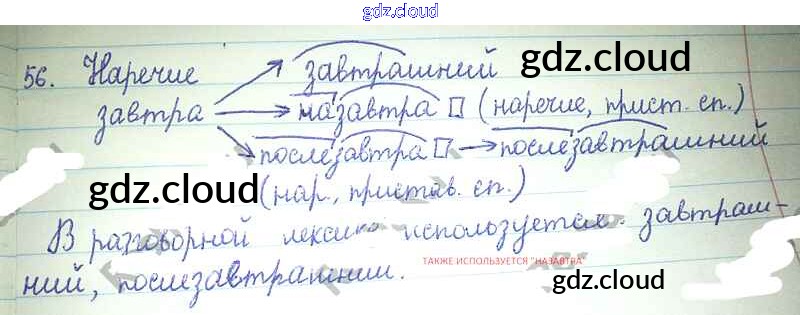 gdz.cloud
56. Наречие завтрашний gdz.cloud
завтра назавтра (наречие, прист. сп.)
послезавтра послезавтрашний
gdz.cloud (нар., пристав. сп.)
В разговорной лексике используется завтраш-
ний, послезавтрашний.
ТАКЖЕ ИСПОЛЬЗУЕТСЯ "НАЗАВТРА"
gdz.cloud